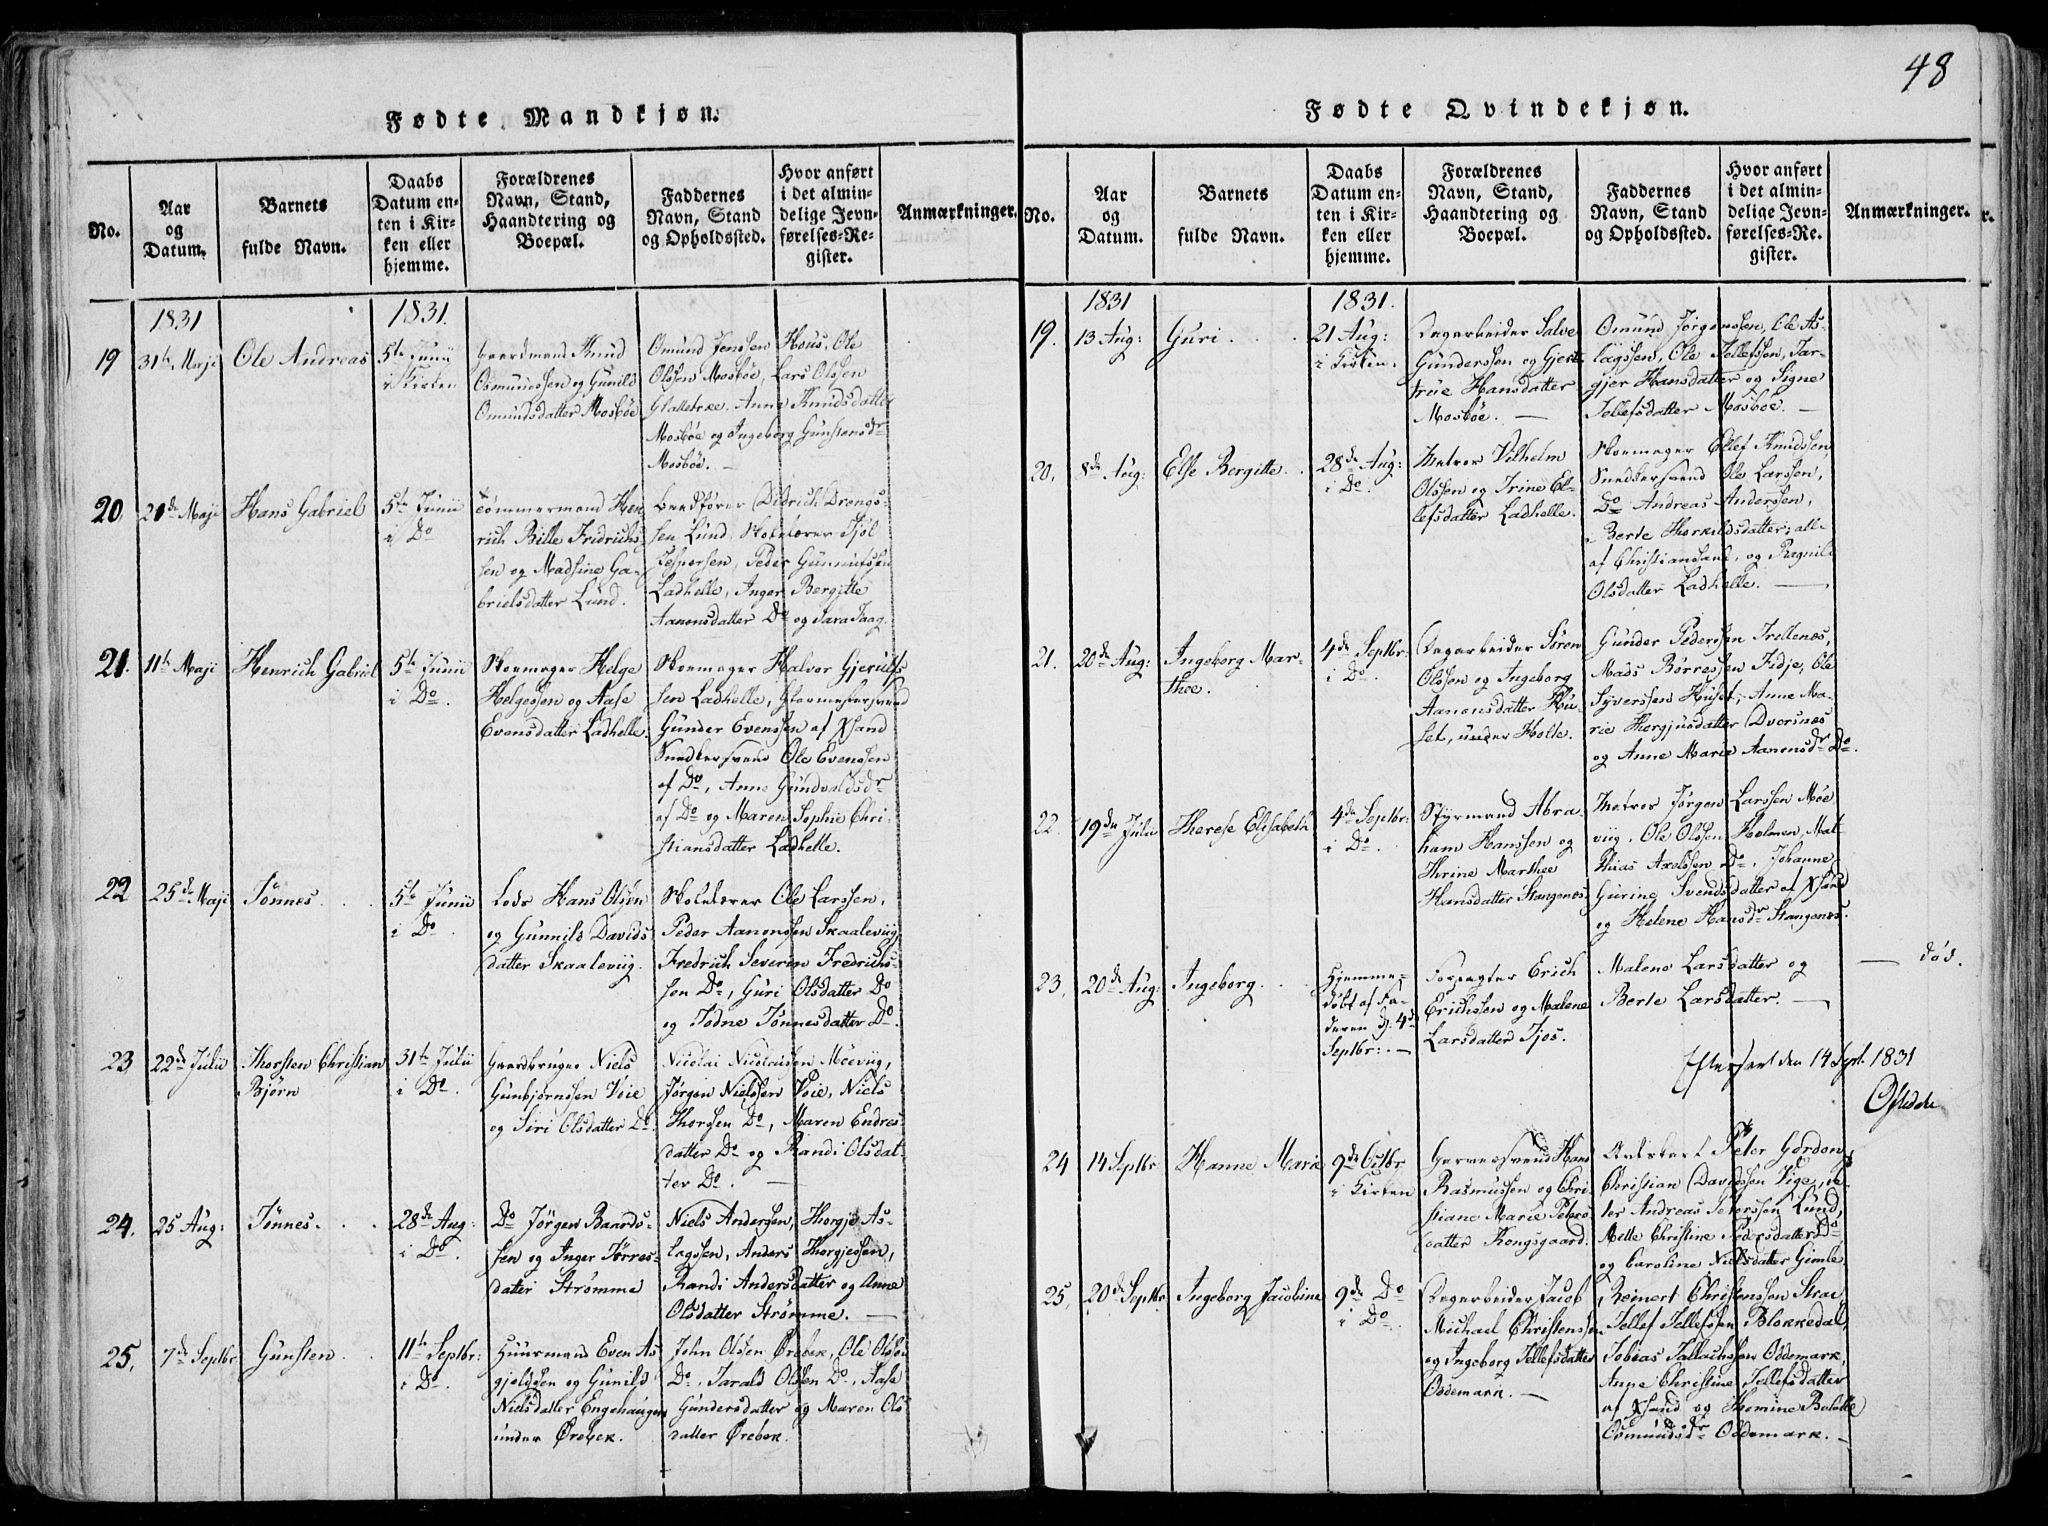 48
Fødte Mandkjøn.
No.
Aar
og
Datum.
Barnets
fulde Navn.
Daabs
Datum en-
ten i Kir-
ken eller
hjemme.
Forældrenes
Navn, Stand,
Haandtering og
Boepæl.
Faddernes
Navn, Stand
og Opholdssted.
Hvor anført
i det almin-
delige Jevn-
førelses-Re-
gister.
Anmærkninger.
1831
1831.
19
31te Maji
Ole Andreas
5te Junii
i Kirken
Gaardmand Knud
Osmundssen og Gunild
Omundsdatter Mosbøe
Omund Jenssen Hous, Ole
Olssen Mosbøe, Lars Olssen
Glattetræ, Anne Knudsdatter
Mosbøe og Ingeborg Gunstensdr
Mosbøe.
20
Maji
Hans Gabriel
5te Junii
i Do
Tømmermand Hen
rich Bille Fridrichs
sen og Madsine Ga-
brielsdatter Lund.
Didrich Drengs-
sen Lund, Skolelærer Tjøl
Jespersen, Peder Gunnufssen
Ladhelle, Inger Bergitte
Aanonsdatter Do og Sara Faag.
21.
11te Maji
Henrich Gabriel
5te Junii
i Do.
Skoemager Helge
Helgessen og Aase
Evensdatter Ladhelle.
Skoemager Halvor Gjerulfs
sen Ladhelle, Glarmestersvend
Gunder Evenssen af Xsand
Snedkersvend Ole Evenssen
af Do, Anne Gundvaldsdr
af Do og Maren Sophie Chri-
stiansdatter Ladhelle.
22
25de Maji
Tønnes
5te Junii
i Do
Lods Hans Olsen
og Gunnild Davids
datter Skaaleviig.
Skolelærer Ole Larssen,
Peder Aanonssen Skaaleviig
Fredrich Severin Fredrichs-
sen Do, Guri Olsdatter Do
og Todne Tønnesdatter Do.
23
22de Julii
Thorsten Christian
Bjørn
31te Julii
i Do.
Gaardbruger Niels
Gunbjørnssen Voie
og Siri Olsdatter Do.
Nicolai Nicolaisen Møeviig,
Jørgen Nielssen Voie, Niels
Thorssen Do, Maren Endres-
datter Do og Randi Olsdat-
ter Do.
24.
25 Aug:
Tønnes.
28de Aug:
i Do.
Do Jørgen Baards-
sen og Inger Torres-
datter Strømme
Niels Anderssen, Thorgje As-
lagssen, Anders Thorgjessen,
Randi Andersdatter og Anne
Olsdatter Strømme.
25,
7de Septbr
Gunsten
11te Septbr:
i Do.
Huusmand Even As
gjeldsen og Gunild
Nielsdatter Engehaugen
under Ørebek.
John Olssen Ørebek, Ole Olssen
Do, Tarald Olssen Do, Aase
Gundersdatter og Maren Ols-
datter Ørebek.
Fødte Qvindekjøn.
No.
Aar
og
Datum.
Barnets
fulde Navn.
Daabs
Datum en-
ten i Kir-
ken eller
hjemme.
Forældrenes
Navn, Stand,
Haandtering og
Boepæl.
Faddernes
Navn, Stand
og Opholdssted.
Hvor anført
i det almin-
delige Jevn-
førelses-Re-
gister.
Anmærkninger.
1831
1831.
19.
13 Aug:
Guri
21 Aug:
i Kirken.
Dagarbeider Salve
Gunderssen og Gjert
rue Hansdatter
Mosbøe.
Omund Jørgenssen, Ole As-
lagssen, Ole Tellefssen, Tar-
gjer Hansdatter og Signe
Tellefsdatter Mosbøe.
20,
8de Aug:
Else Bergitte
28de Aug:
i Do.
Matros Vilhelm
Olssen og Trine El-
lefsdatter Ladhelle.
Skoemager Ellef Knudssen,
Snedkersvend Ole Larssen,
Do Andreas Anderssen,
Berte Thorkildsdatter; alle
af Christiansand, og Ragnild
Olsdatter Ladhelle.
21.
20de Aug:
Ingeborg Mar-
thee.
4de Septbr:
i Do.
Dagarbeider Søren
Olssen og Ingeborg
Aanonsdatter Hu-
set, under Holte.
Gunder Pederssen Trellenæs
Mads Børressen Fidje, Ole
Syverssen Huset, Anne Ma-
rie Thorgjusdatter Dvorsnæs
og Anne Marie Aanonsdr Do.
22.
19de Julii
Therese Elisabeth
4de Septbr:
i Do.
Styrmand Abra
ham Hanssen og
Thrine Marthee
Hansdatter Stangenæs.
Matros Jørgen Larssen Møe
viig, Ole Olssen Holmen, Mat-
thias Axelssen Do, Johanne
Guring Svendsdatter af Xsand
og Helene Hansdr Stangenæs.
23,
20de Aug:
Ingeborg.
Hjemme-
døbt af Fa-
deren d. 4de
Septbr:
Forpagter Erich
Erichssen og Malene
Larsdatter Tjos.
Malene Larsdatter og
Berte Larsdatter.
død.
Efterseet den 14 Sept. 1831
Oftedahl
24
14 Septbr
Hanne Marie
9de Octbr
i Kirken
Garversvend Hans
Rasmussen og Chri-
stiane Marie Peters
datter Kongsgaard.
Peter Gordon,
Christian Davidssen Vige, Pe-
ter Andreas Peterssen Lund,
Mette Christine Pedersdatter Do
og Caroline Nielsdatter Gimle.
25,
20de Septbr
Ingeborg Jacobine
9de Do
i Do.
Dagarbeider Jacob
Michael Christenssen
og Ingeborg Tellefsdatter
Oddemark.
Reinert Christenssen Straae
Tellef Tellefssen Blokkedal,
Tobias Tallachssen Oddemark,
Anne Christine Tellefsdatter
af Xsand og Thomine Bolette
Osmundsdr Oddemark.